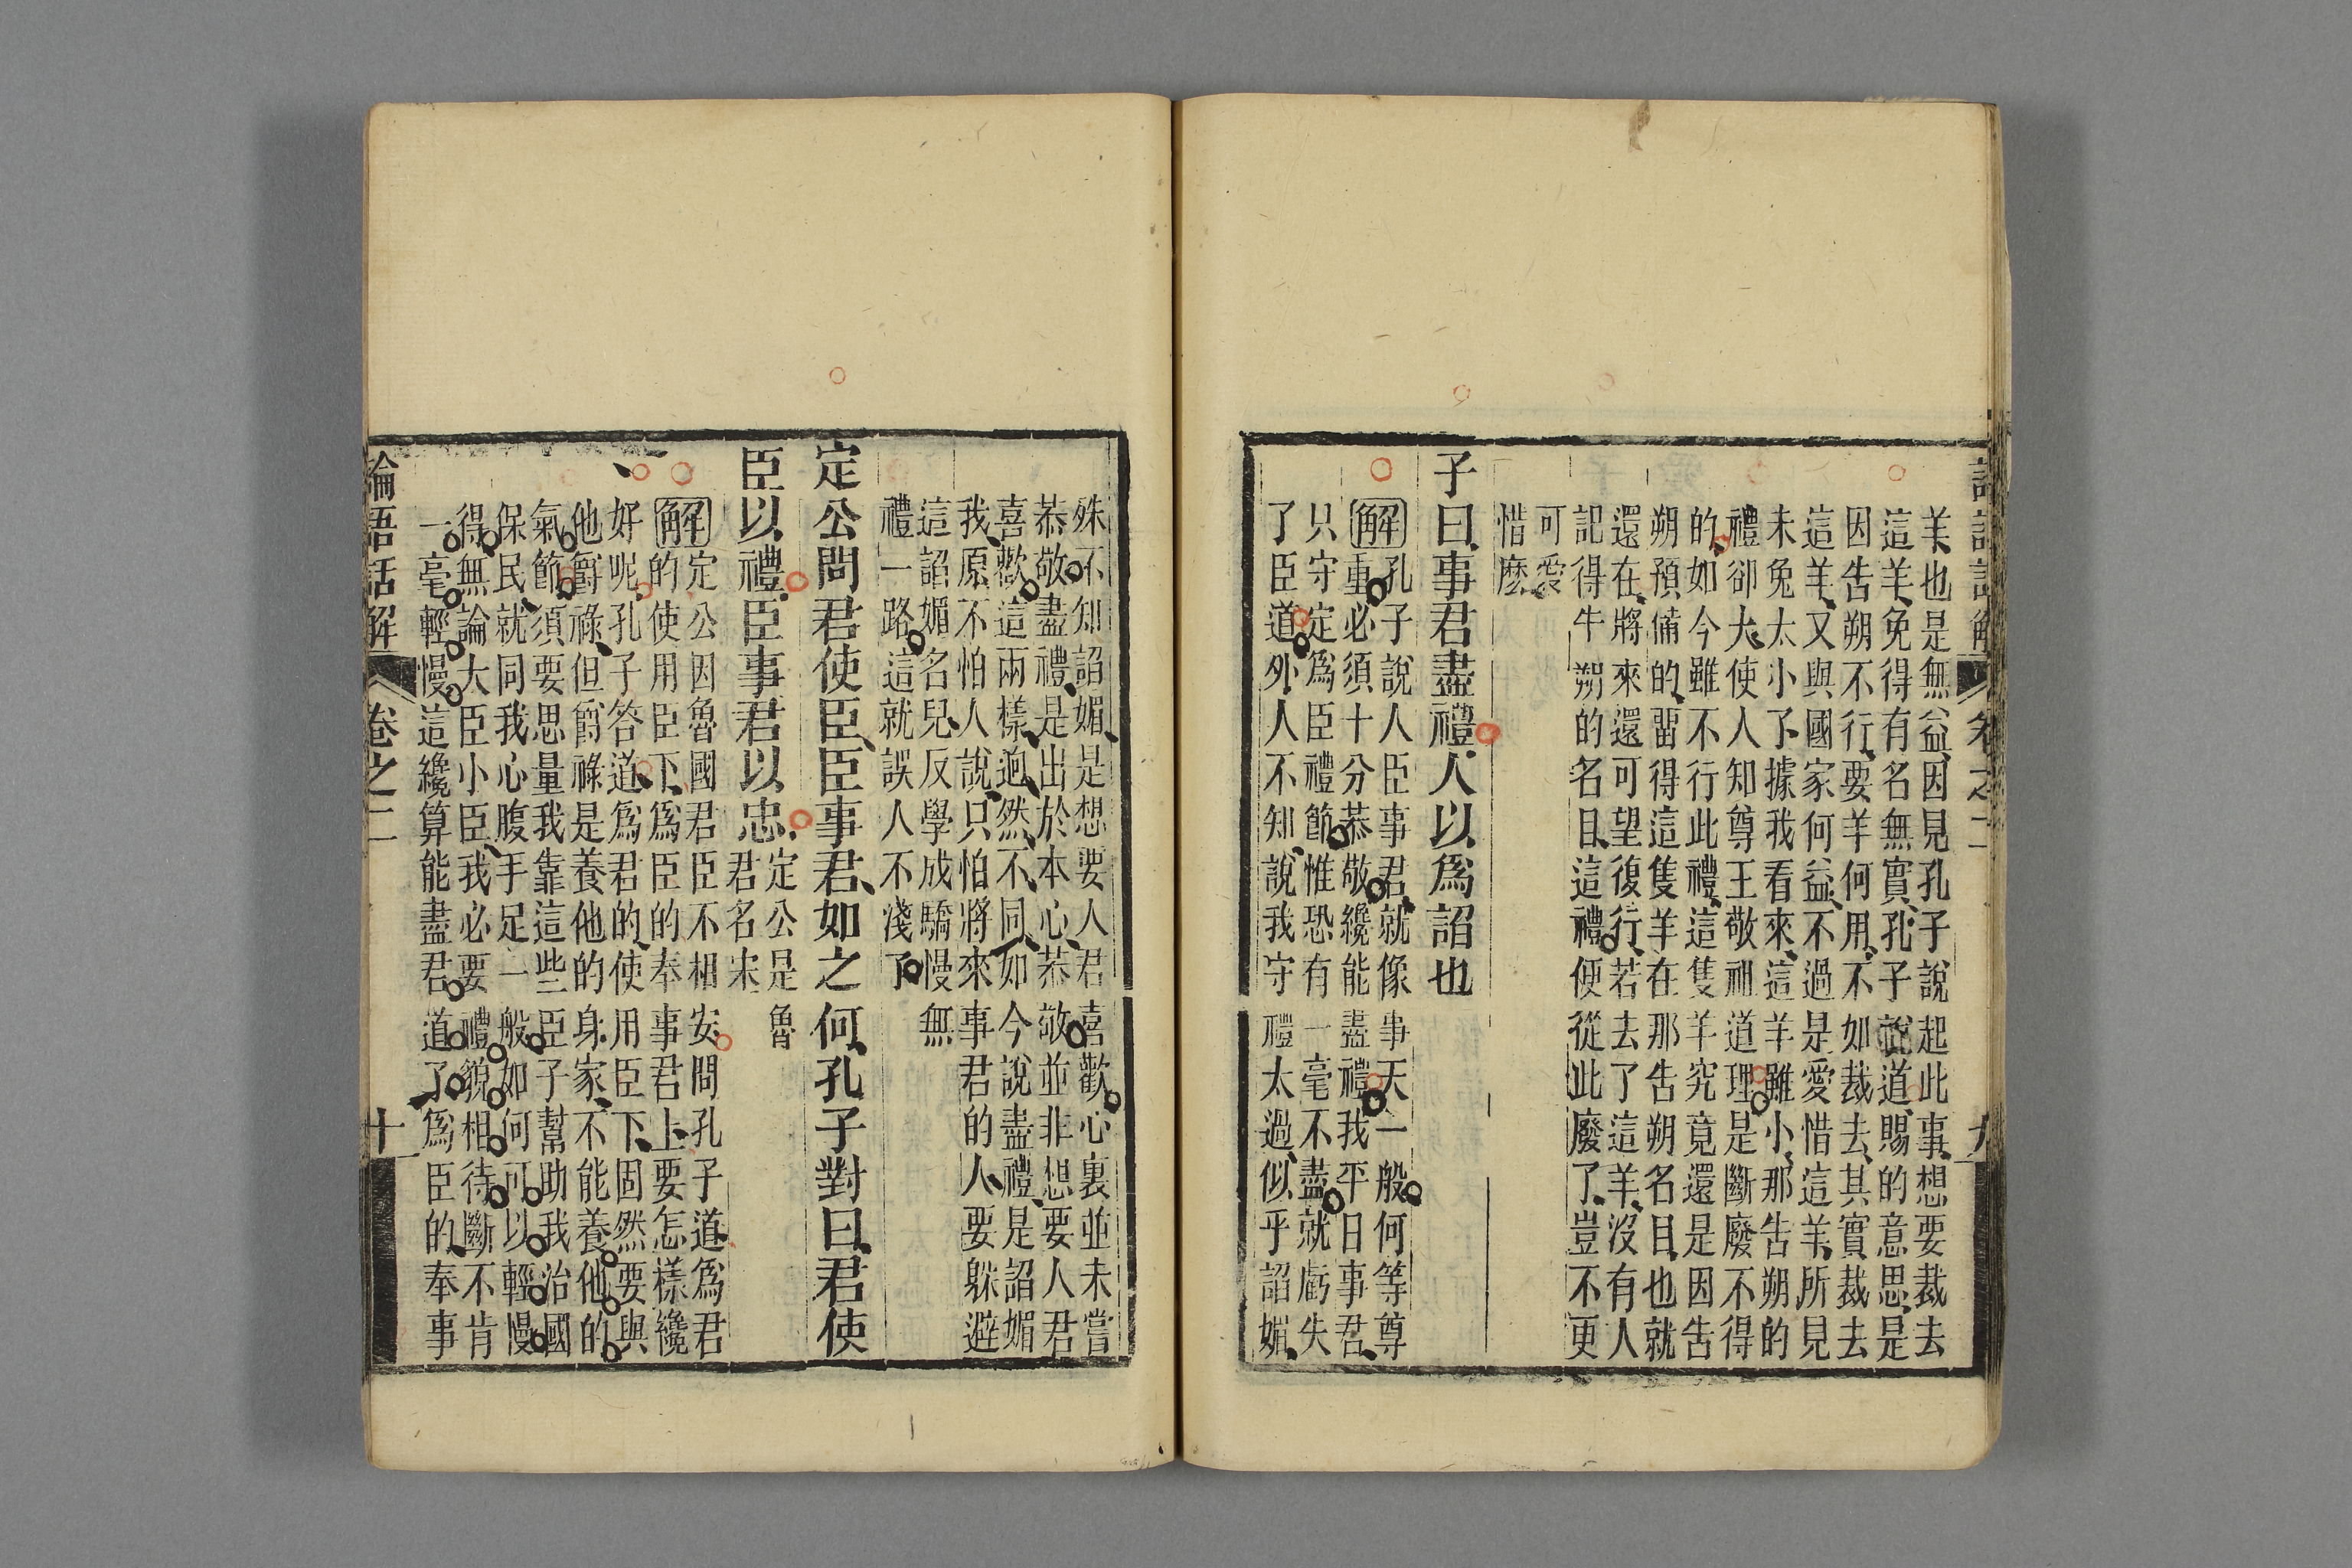 羊也是無益因見孔子說起此事想要裁去
這羊免得有名無實孔子說道賜的意思是
因告朔不行要羊何用不如裁去其實裁去
這羊又與國家何益不過是愛惜這羊所見
未免太小了據我看來這羊雖小那告朔的
禮卻大使人知尊王敬祖道理是斷廢不得
的如今雖不行此禮這隻羊究竟還是因告
朔預備的畱得這隻羊在那告朔名目也就
還在將來還可望復行若去了這羊沒有人
記得牛朔的名目這禮便從此廢了豈不更
可愛
惜麽
子曰事君盡禮人以爲諂也
解孔子說人臣事君就像事天一般何等尊
重必須十分恭敬纔能盡禮我平日事君
只守定爲臣禮節惟恐有一毫不盡就虧失
了臣道外人不知說我守禮太過似乎諂媚
殊不知諂媚是想要人君喜歡心裏並未嘗
恭敬盡禮是出於本心恭敬並非想要人君
喜歡這兩樣逈然不同如今說盡禮是諂媚
我原不怕人說只怕將來事君的人要躲避
這諂媚名兒反學成驕慢無
禮一路這就誤人不淺了
定公問君使臣臣事君如之何孔子對曰君使
臣以禮臣事君以忠定公是魯君名宋
解定公因魯國君臣不相安問孔子道爲君
的使用臣下爲臣的奉事君上要怎樣纔
好呢孔子答道爲君的使用臣下固然要與
他爵祿但爵祿是養他的身家不能養他的
氣節須要思量我靠這些臣子幫助我治國
保民就同我心腹手足一般如何可以輕慢
得無論大臣小臣我必要禮貌相待斷不肯
一毫輕慢這纔算能盡君道了爲臣的奉事
論語話解 卷之二 十